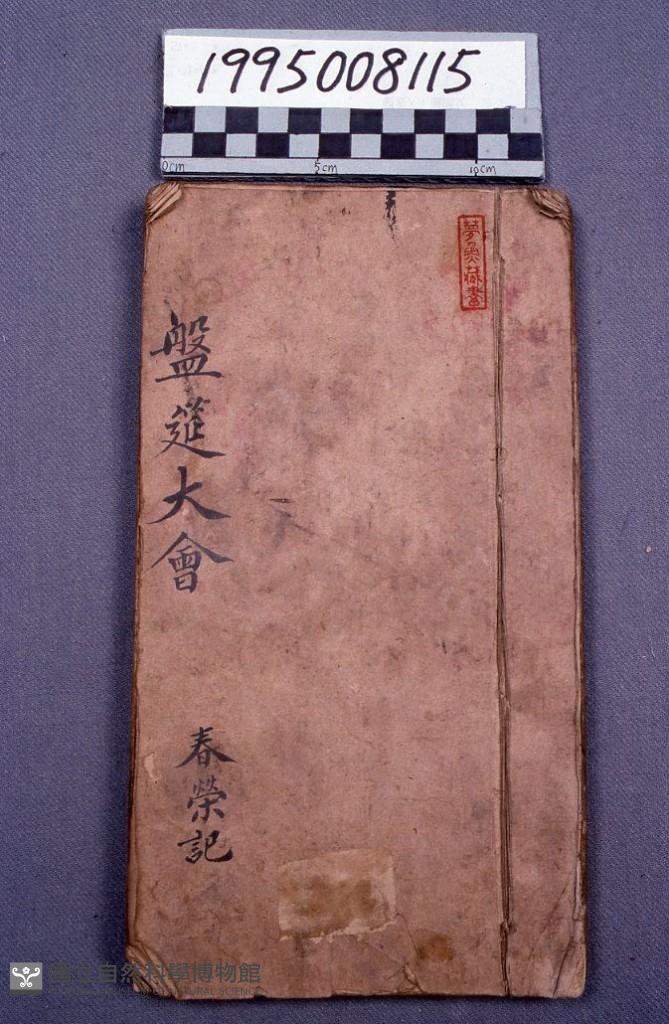 1995008115
0cm 5cm 10cm
盤筵大會
春榮記
藏書
國立自然科學博物館
NATURAL SCIENCE